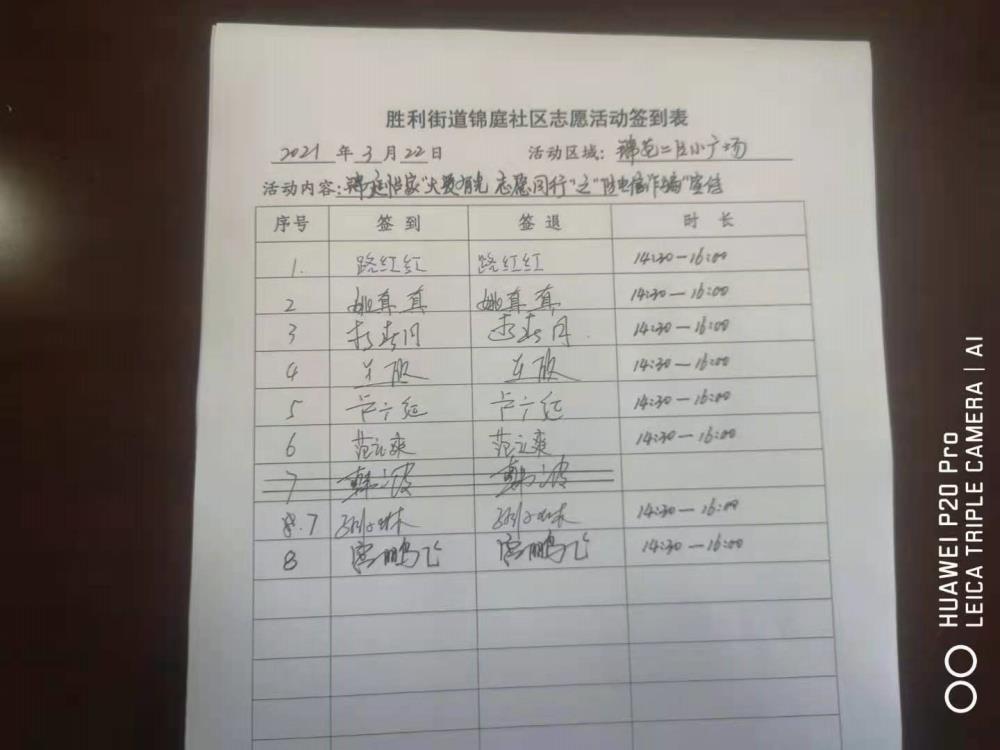 胜利街道锦庭社区志愿活动签到表
2021 年 3 月 22 日 活动区域: 锦苑二区小广场
活动内容: 锦庭怡家"火翼有光 志愿同行"之"防电信诈骗"宣传
序号 签到 签退 时长
1. 路红红 路红红 14:30—16:00
2 姚真真 姚真真 14:30—16:00
3 14:30—16:00
4 14:30—16:00
5 14:30—16:00
6 范立爽 范立爽 14:30—16:00
7
8.7 14:30—16:00
8 宫鹏飞 宫鹏飞 14:30—16:00
HUAWEI P20 Pro
LEICA TRIPLE CAMERA | AI